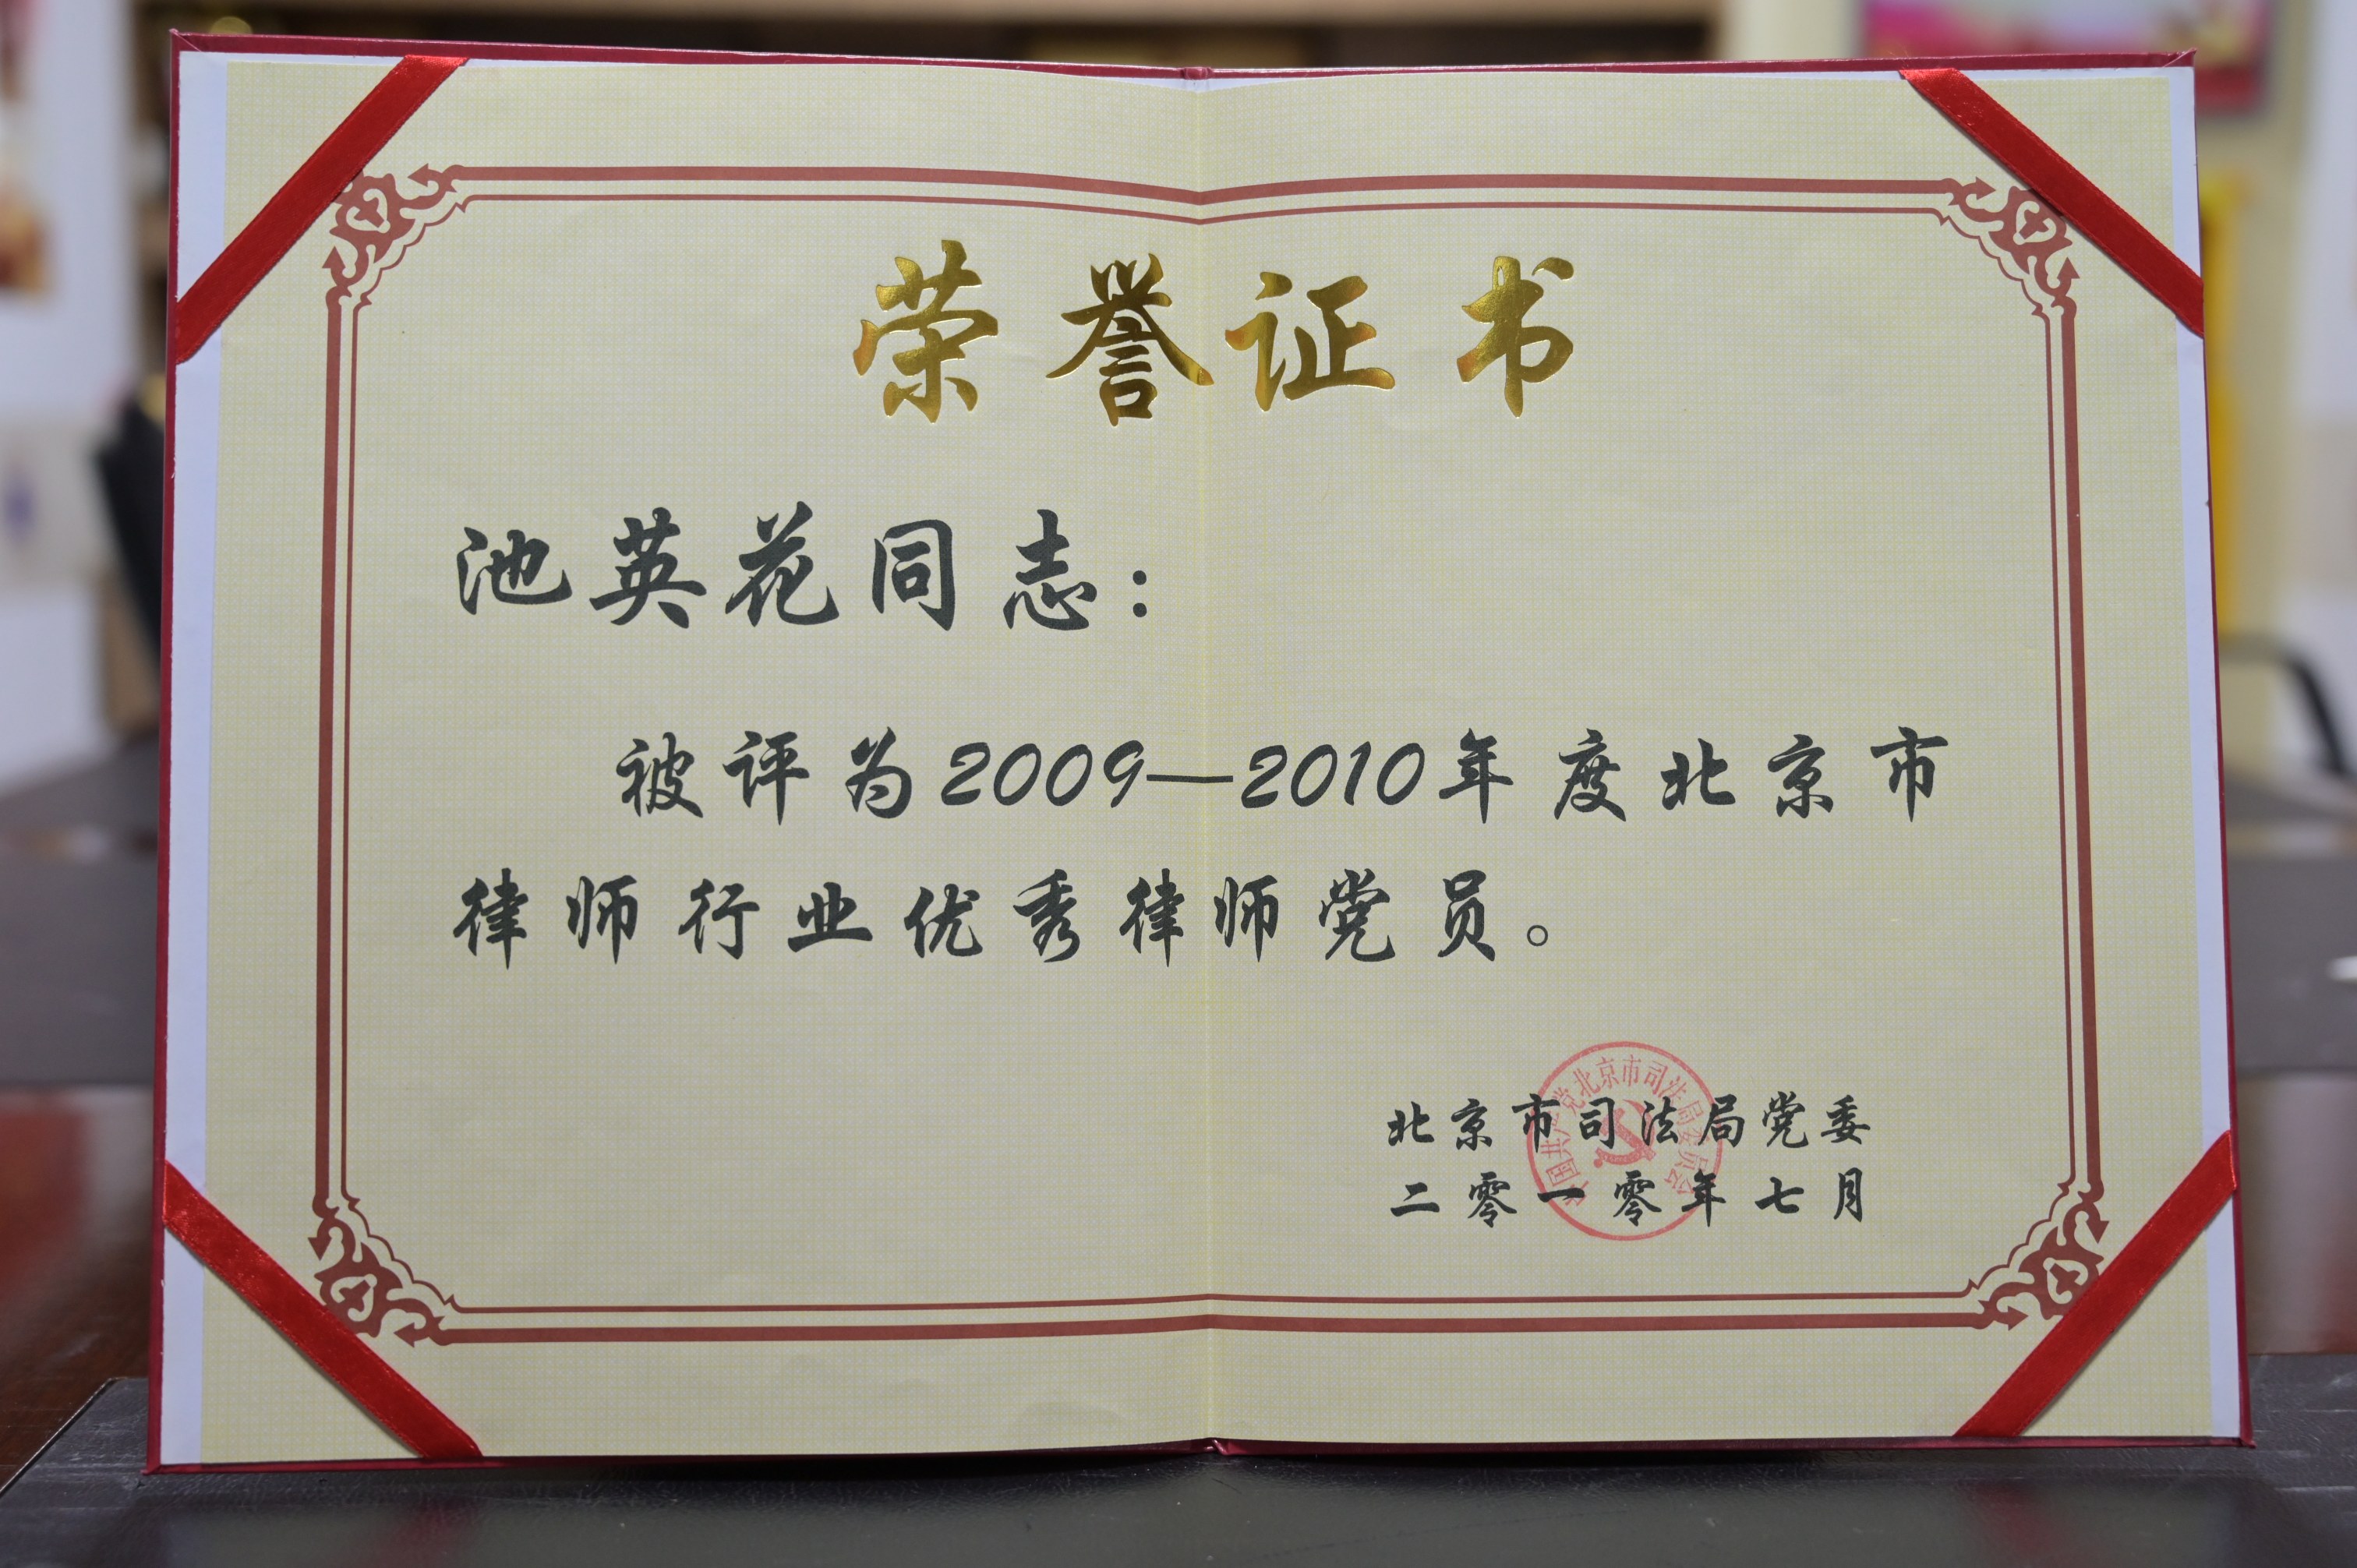 荣誉证书
池英花同志：
被评为2009—2010年度北京市
律师行业优秀律师党员。
北京市司法局党委
二零一零年七月
中国共产党北京市司法局委员会